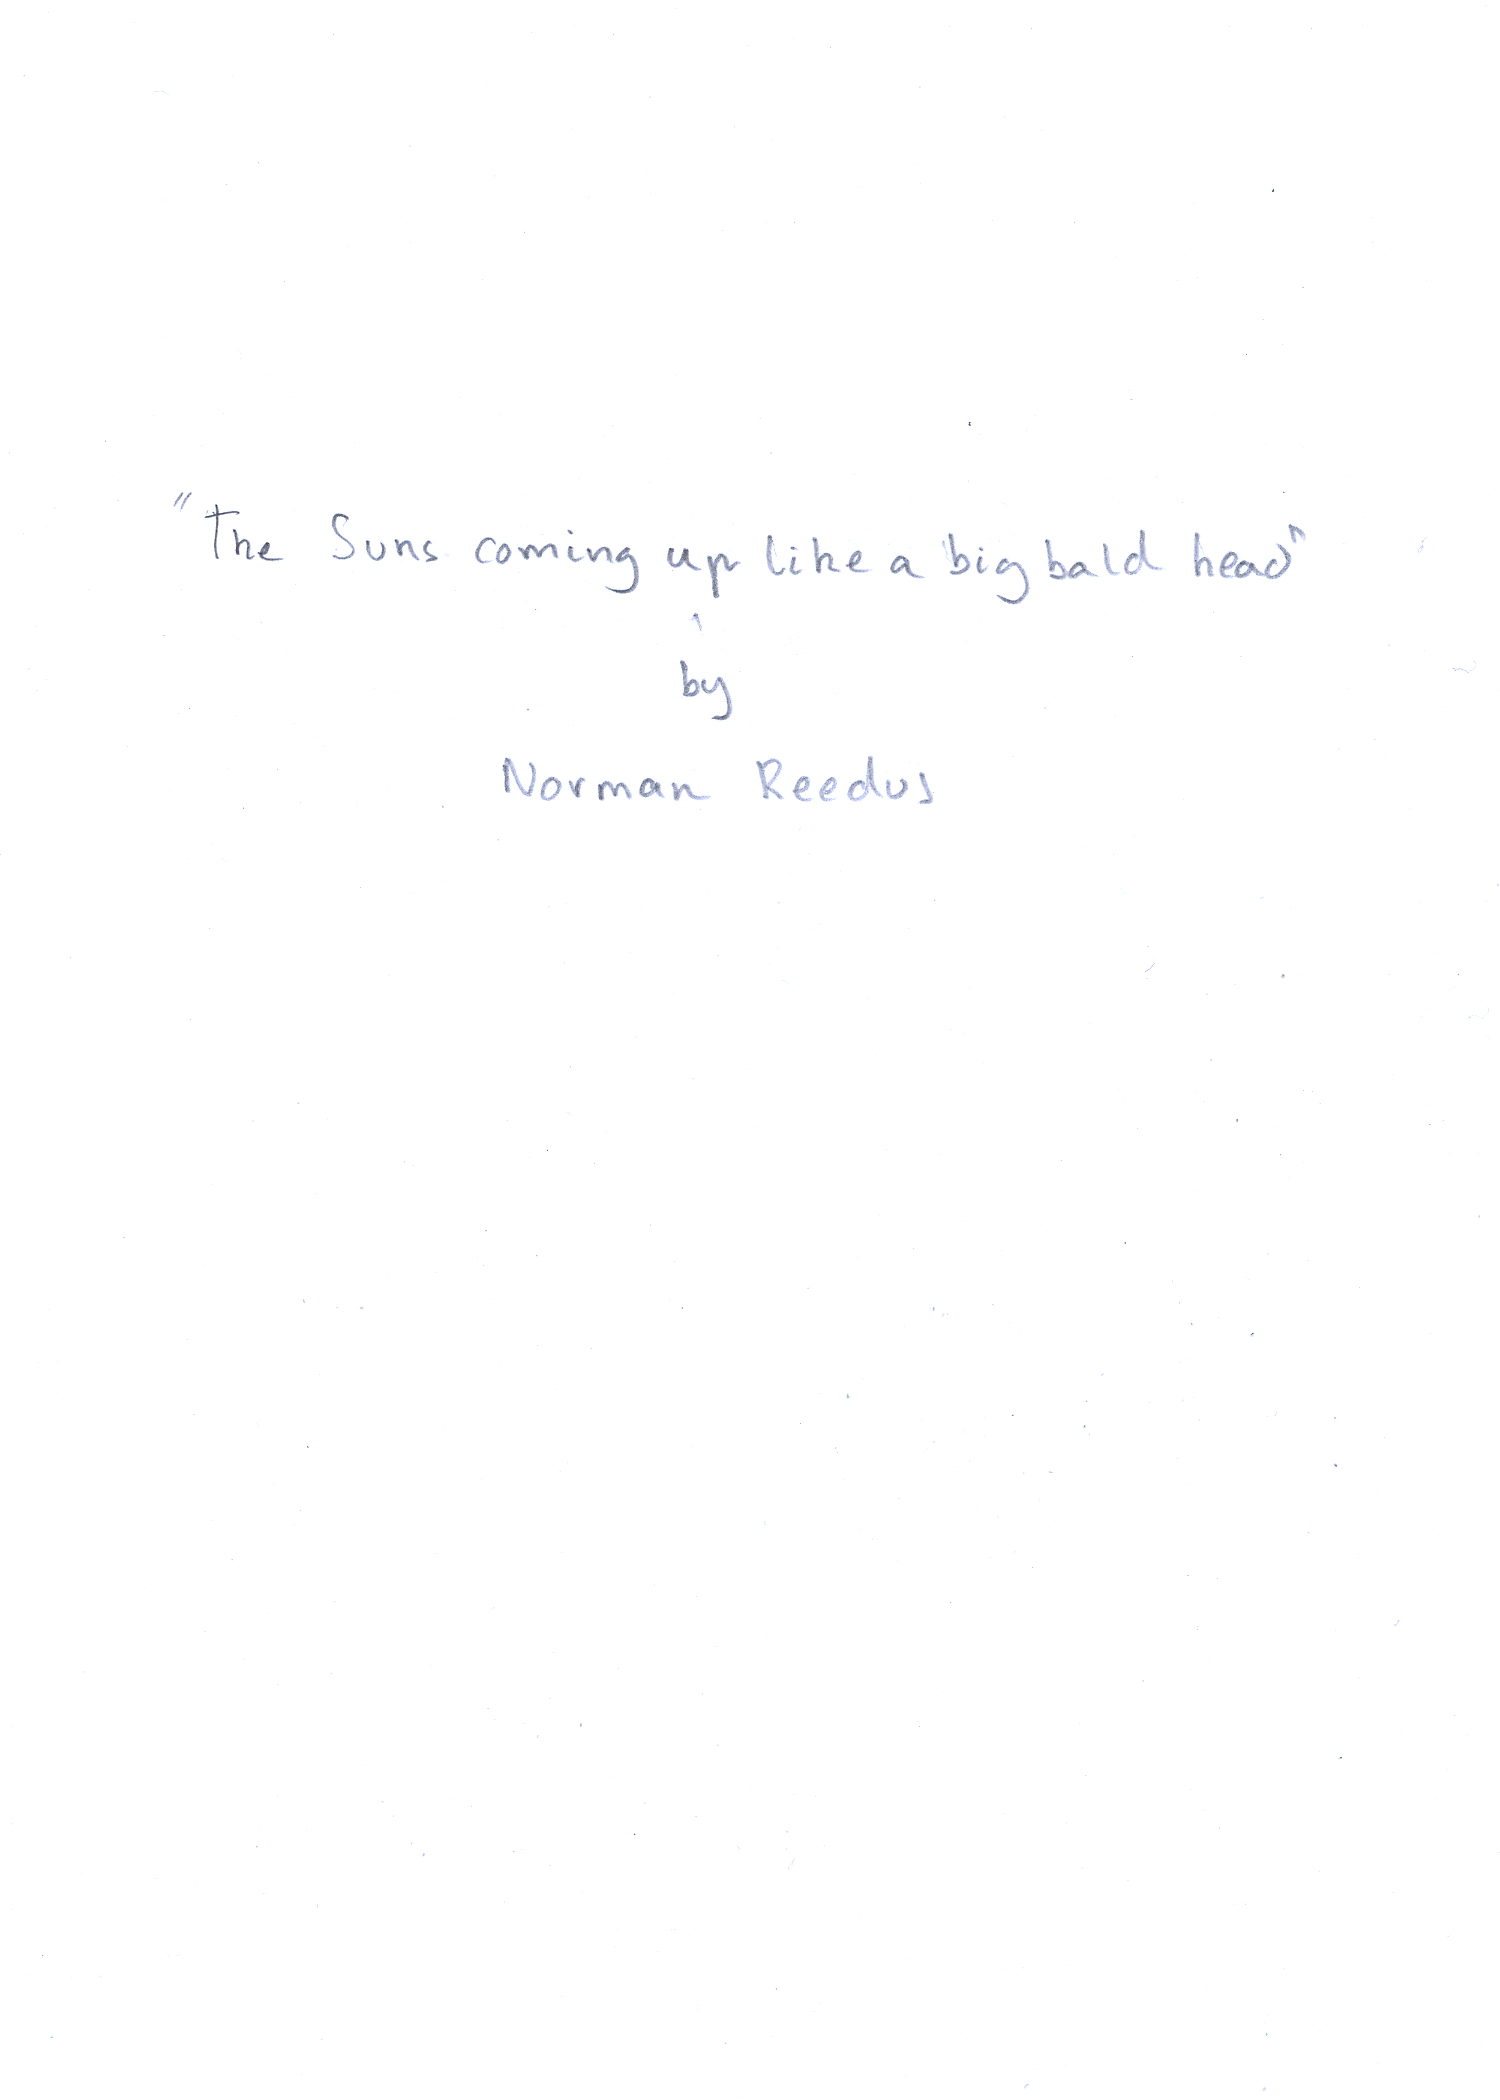 "The Suns coming up like a big bald head"
by
Norman Reedus